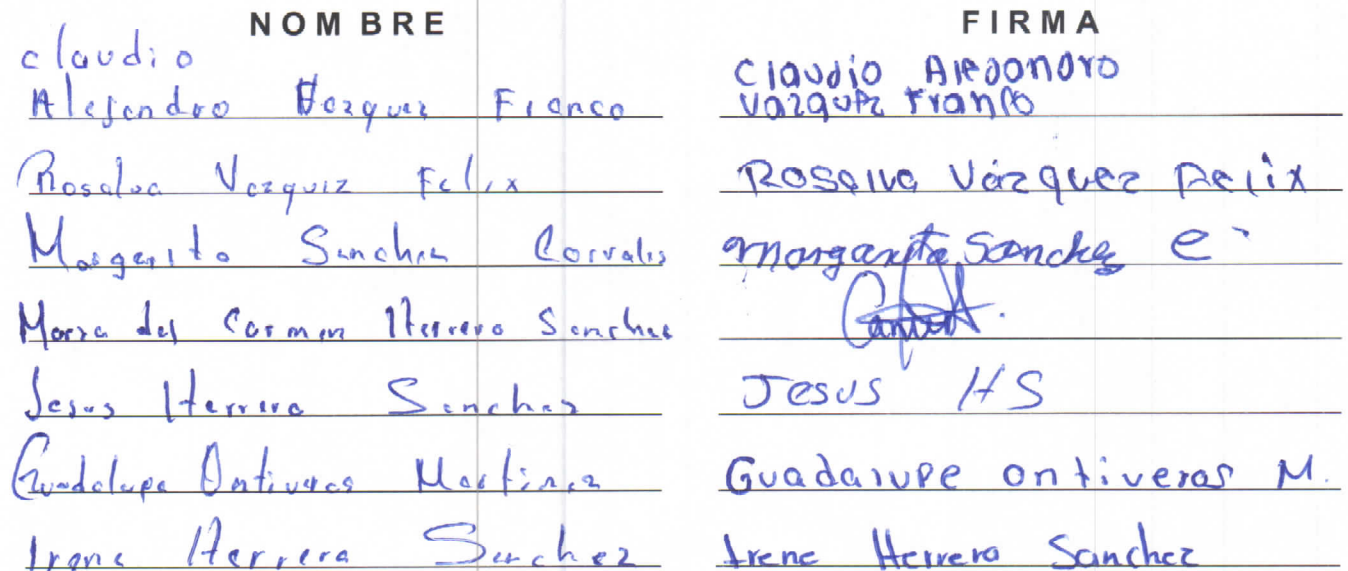 NOMBRE FIRMA
claudio
Alejandro Vazquez Franco Claudio Alejandro
Vazquez Franco
Rosalva Vazquiz Felix Rosalva Vázquez Felix
Margarita Sanchez Corrales Margarita Sanchez C
Maria del Carmen Herrera Sanchez
Jesus Herrera Sanchez Jesus HS
Guadalupe Ontiveros Martinez Guadalupe ontiveros M.
Irene Herrera Sanchez Irene Herrera Sanchez